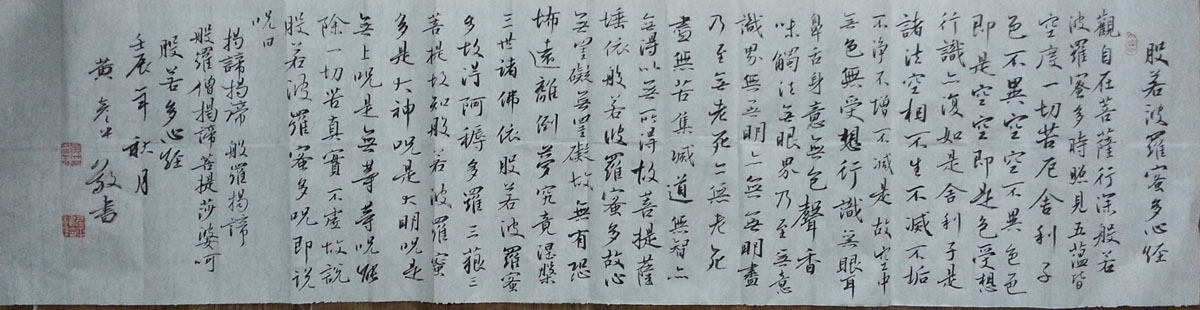 般若波羅蜜多心经
觀自在菩薩行深般若
波羅蜜多時照見五蕴皆
空度一切苦厄舍利子
色不異空空不異色色
即是空空即是色受想
行識亦復如是舍利子是
諸法空相不生不滅不垢
不净不增不减是故空中
無色無受想行識無眼耳
鼻舌身意無色聲香
味觸法無眼界乃至無意
識界無無明亦無無明盡
乃至無老死亦無老死
盡無苦集滅道無智亦
無得以無所得故菩提薩
埵依般若波羅蜜多故心
無罣礙無罣礙故無有恐
怖遠離倒夢究竟涅槃
三世諸佛依般若波羅蜜
多故得阿耨多羅三藐三
菩提故知般若波羅蜜
多是大神呪是大明呪是
無上呪是無等等呪能
除一切苦真實不虚故說
般若波羅蜜多呪即説
呪曰
揭諦揭諦 般羅揭諦
般羅僧揭諦菩提莎婆呵
般若多心经
壬辰年秋月
黄 敬書